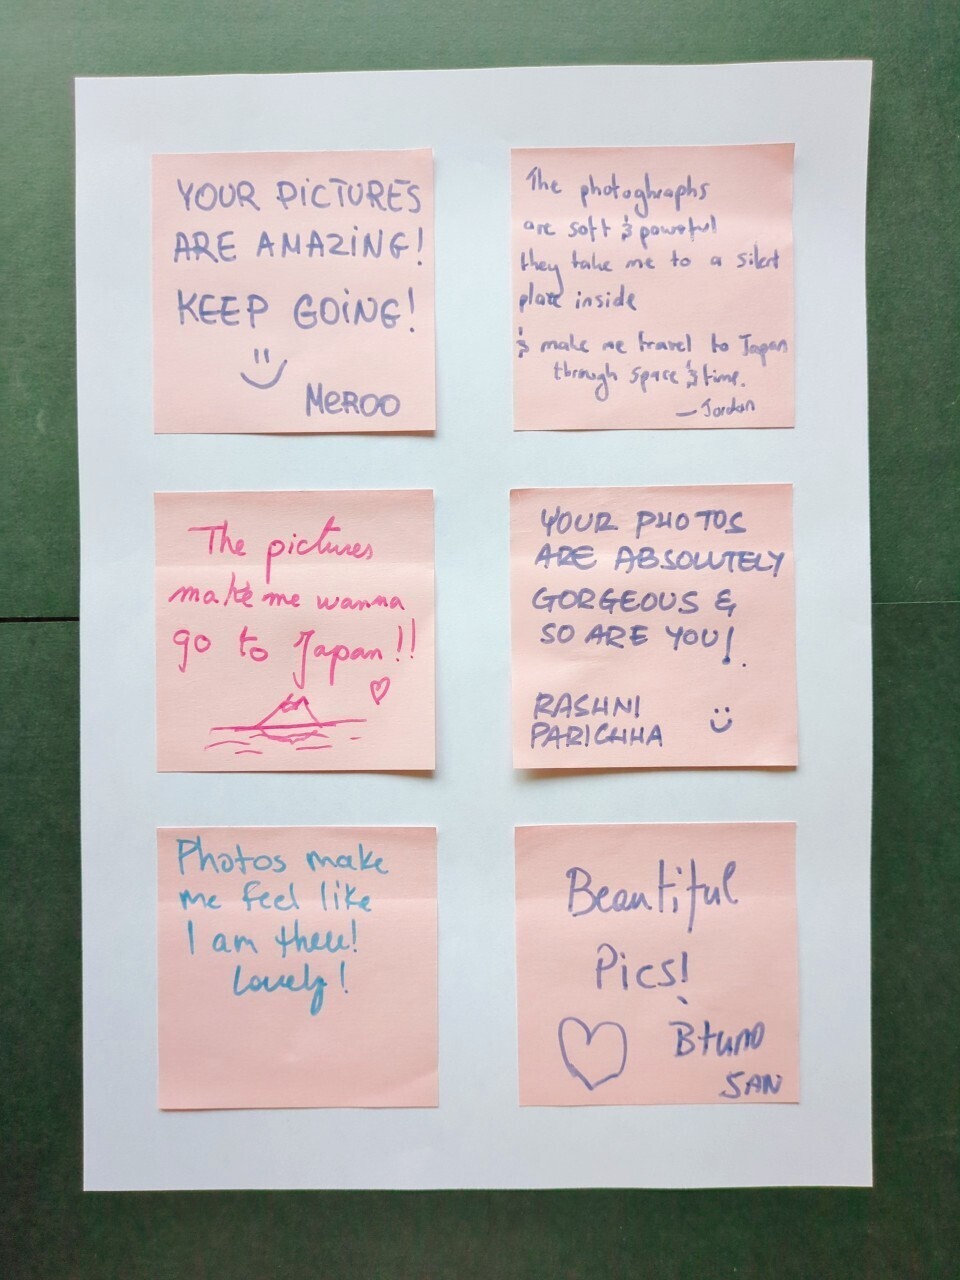 YOUR PICTURES
ARE AMAZING!
KEEP GOING!
MEROO
The photoghraphs
are soft & powerful
they take me to a silent
place inside
& make me travel to Japan
through space & time.
— Jordan
The pictures
make me wanna
go to Japan!!
YOUR PHOTOS
ARE ABSOLUTELY
GORGEOUS &
SO ARE YOU!
RASHNI
PARICHHA
Photos make
me feel like
I am there!
Lovely!
Beautiful
Pics!
Bruno
SAN